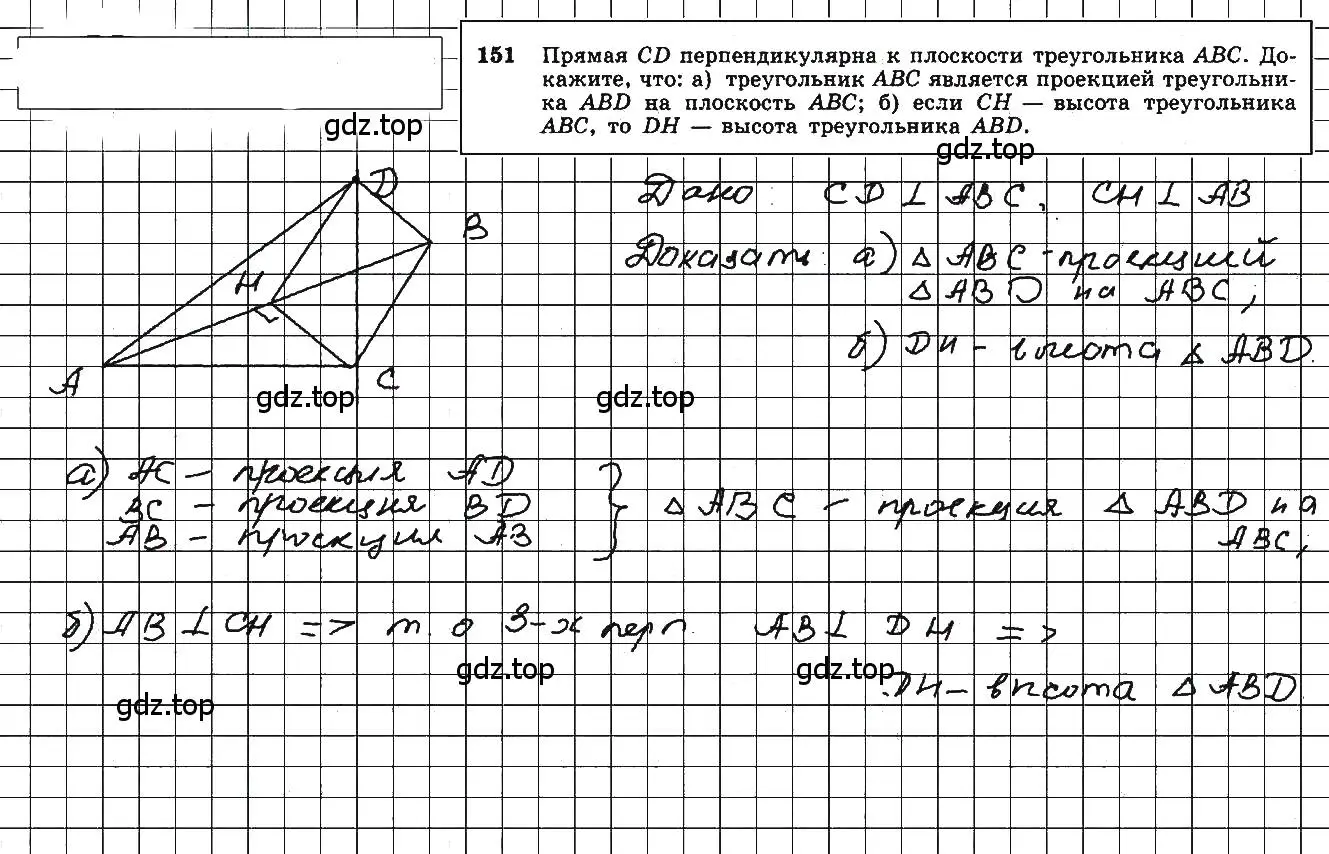 151 Прямая CD перпендикулярна к плоскости треугольника ABC. До-
кажите, что: а) треугольник ABC является проекцией треугольни-
ка ABD на плоскость ABC; б) если CH — высота треугольника
ABC, то DH — высота треугольника ABD.
gdz.top
gdz.top
D
B
H
A
C
gdz.top
gdz.top
Дано: CD ⊥ ABC, CH ⊥ AB
Доказать: а) △ ABC - проекцией
△ ABD на ABC,
б) DH - высота △ ABD.
а) AC - проекция AD
BC - проекция BD
AB - проекция AB
} △ ABC - проекция △ ABD на
ABC,
б) AB ⊥ CH => т. о 3-х перп. AB ⊥ DH =>
gdz.top
gdz.top
DH - высота △ ABD
gdz.top